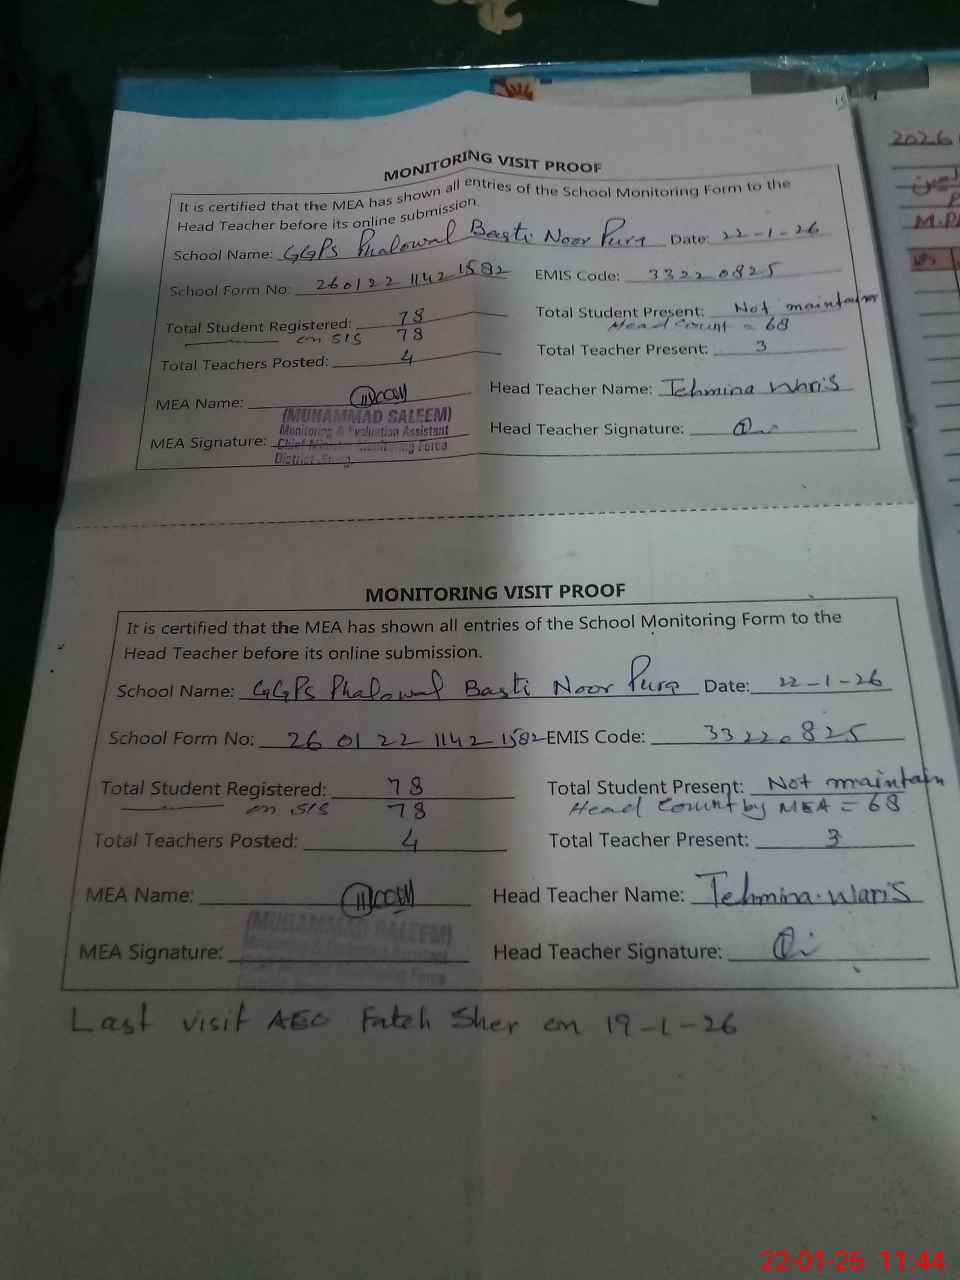 MONITORING VISIT PROOF
It is certified that the MEA has shown all entries of the School Monitoring Form to the
Head Teacher before its online submission.
School Name: GGPS Phalowal Basti Noor Pura Date: 22-1-26
School Form No: 260122 1142 1582 EMIS Code: 33220825
Total Student Registered: 78 Total Student Present: Not maintain
on SIS 78 Head Count = 68
Total Teachers Posted: 4 Total Teacher Present: 3
MEA Name: Head Teacher Name: Tehmina Waris
(MUHAMMAD SALEEM)
Monitoring & Evaluation Assistant
MEA Signature: Head Teacher Signature:
Chief Monitoring Force
District
MONITORING VISIT PROOF
It is certified that the MEA has shown all entries of the School Monitoring Form to the
Head Teacher before its online submission.
School Name: GGPS Phalowal Basti Noor Pura Date: 22-1-26
School Form No: 26 01 22 1142 1582 EMIS Code: 33220825
Total Student Registered: 78 Total Student Present: Not maintain
on SIS 78 Head Count by MEA = 68
Total Teachers Posted: 4 Total Teacher Present: 3
MEA Name: Head Teacher Name: Tehmina Waris
(MUHAMMAD SALEEM)
Monitoring & Evaluation Assistant
MEA Signature: Head Teacher Signature:
Last visit AEO Fateh Sher on 19-1-26
2026
22-01-26 11:44